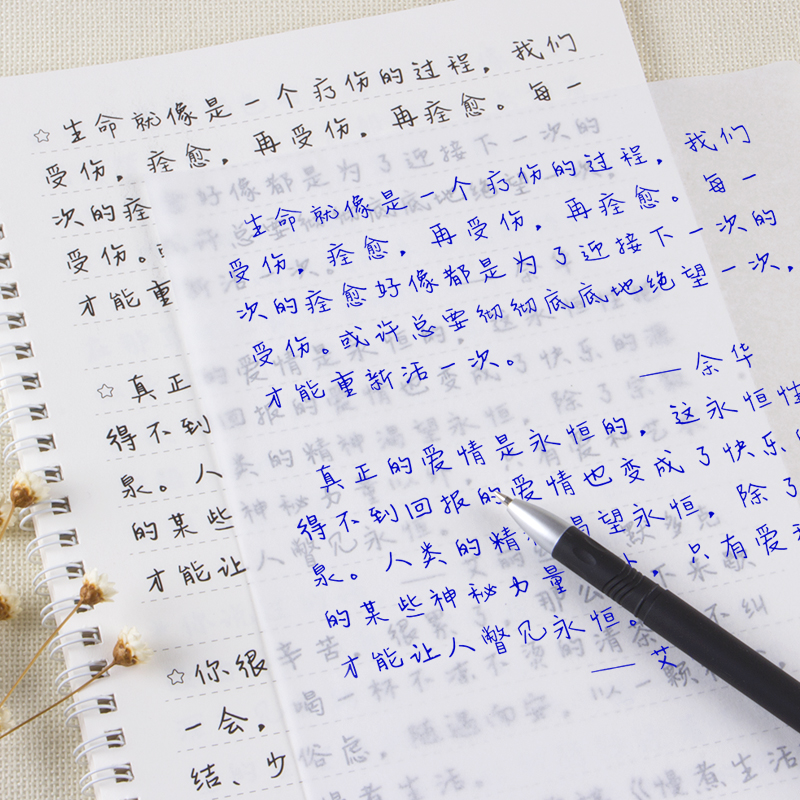 生命就像是一个疗伤的过程，我们
受伤，痊愈，再受伤，再痊愈。每一
次的痊
受伤。
才能重
真正
得不到
泉。人
的某些
才能让
你很
一会，
结、少
生命就像是一个疗伤的过程，我们
受伤，痊愈，再受伤，再痊愈。每一
次的痊愈好像都是为了迎接下一次的
受伤。或许总要彻彻底底地绝望一次，
才能重新活一次。
——余华
真正的爱情是永恒的，这永恒性
得不到回报的爱情也变成了快乐
泉。人类的精 渴望永恒，除了
的某些神秘力量 ，只有爱
才能让人瞥见永恒。
——艾
辛苦，很累了，那么
喝一杯不凉不烫的清茶 不纠
俗虑，随遇而安，以一颗
煮生活。 《慢煮生活